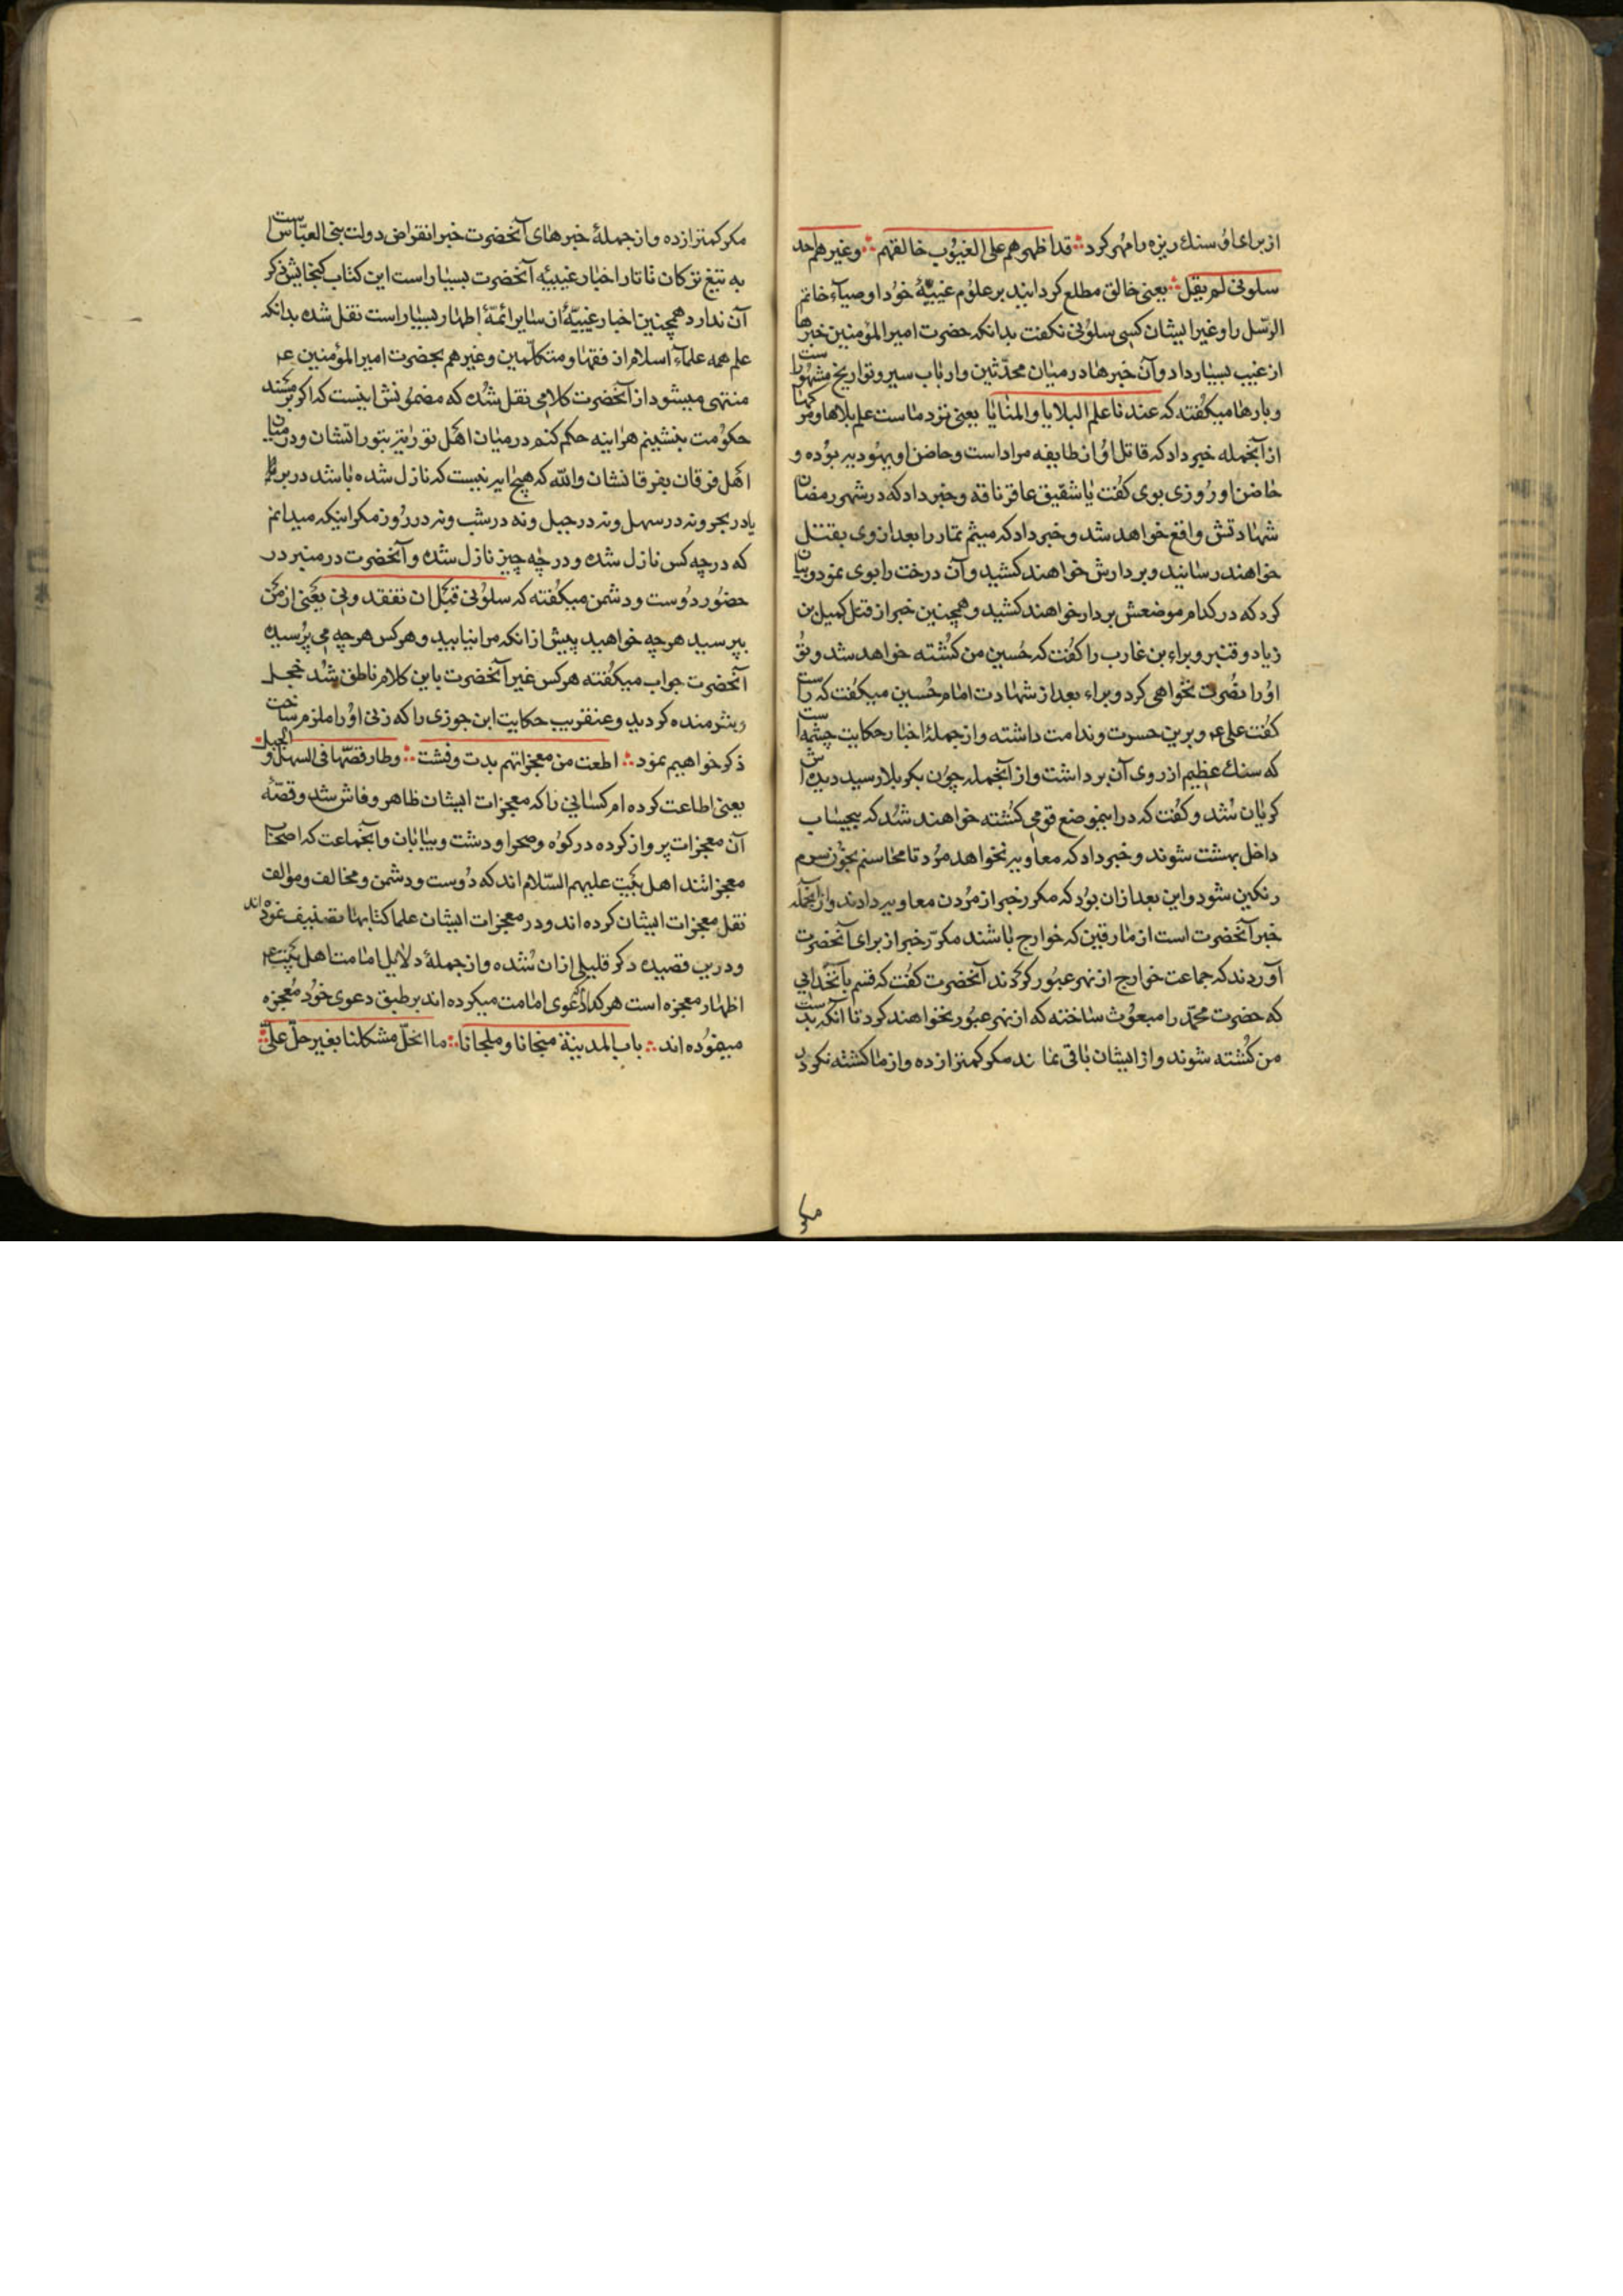 از برای او سنك ریزه را مهر کرد ∴ قد اظهر هم علی الغیوب خالقهم ∴ وغیر هم احد
سلونی لم یقل ∴ یعنی خالق مطلع کردانید بر علوم غیبیّهٔ خود اوصیآء خاتم
الرّسل را و غیر ایشان کسی سلونی نکفت بدانکه حضرت امیر المؤمنین خبرها
از غیب بسیار داد و آن خبرها در میان محدّثین و ارباب سیر و تواریخ مشهور است
و بارها میکفته که عندنا علم البلایا و المنایا یعنی نزد ما است علم بلاها و مرکها
از آنجمله خبر داد که قاتل او از طایفه مراد است و حاضن او یهودیه بوده و
حاضن او روزی بوی کفت یا شقیق عاقر ناقه و خبر داد که در شهر رمضان
شهادتش واقع خواهد شد و خبر داد که میثم تمار را بعد از وی بقتل
خواهند رسانید و بر دارش خواهند کشید و آن درخت را بوی نمود و بیان
کرد که در کدام موضعش بر دار خواهند کشید و همچنین خبر از قتل کمیل بن
زیاد و قنبر و براء بن عازب را کفت که حسین من کشته خواهد شد و تو
او را نصرت نخواهی کرد و براء بعد از شهادت امام حسین میکفت که راست
کفت علی عم و برین حسرت و ندامت داشته و از جملهٔ اخبار حکایت چشمه است
که سنك عظیم از روی آن برداشت و از آنجمله چون بکربلا رسید دیده اش
کریان شد و کفت که در اینموضع قومی کشته خواهند شد که بیحساب
داخل بهشت شوند و خبر داد که معاویه نخواهد مرد تا محاسنم بخون سرم
رنکین شود و این بعد از ان بود که مکرر خبر از مردن معاویه دادند و از آنجمله
خبر آنحضرت است از مارقین که خوارج باشند مکرّر خبر از برای آنحضرت
آوردند که جماعت خوارج از نهر عبور کردند آنحضرت کفت که قسم بآنخدایی
که حضرت محمّد را مبعوث ساخته که از نهر عبور نخواهند کرد تا آنکه بدست
من کشته شوند و از ایشان باقی نماند مکر کمتر از ده و از ما کشته نکردد
مکر
مکر کمتر از ده و از جملهٔ خبرهای آنحضرت خبر انقراض دولت بنی العبّاس است
به تیغ ترکان تاتار اخبار غیبیّه آنحضرت بسیار است این کتاب کنجایش ذکر
آن ندارد همچنین اخبار غیبیّهٔ از سایر ائمّهٔ اطهار بسیار است نقل شده بدانکه
علم همه علمآء اسلام از فقها و متکلّمین و غیر هم بحضرت امیر المؤمنین عم
منتهی میشود از آنحضرت کلامی نقل شده که مضمونش اینست که اکر بر مسند
حکومت بنشینم هر اینه حکم کنم در میان اهل توراة بتوراتشان و در میان
اهل فرقان بفرقانشان والله که هیچ ایه نیست که نازل شده باشد در بر
یا در بحر و نه در سهل و نه در جبل و نه در شب و نه در روز مکر اینکه میدانم
که در چه کس نازل شده و در چه چیز نازل شده و آنحضرت در منبر در
حضور دوست و دشمن میکفته که سلونی قبل ان تفقدونی یعنی از من
بپرسید هر چه خواهید پیش از انکه مرا نیابید و هر کس هر چه می پرسید
آنحضرت جواب میکفته هر کس غیر آنحضرت باین کلام ناطق شد خجل
و شرمنده کردید و عنقریب حکایت ابن جوزی را که زنی او را ملزم ساخت
ذکر خواهیم نمود ∴ اطعت من معجزاتهم بدت و فشت ∴ و طار قصّتها فی السهل و الجبل
یعنی اطاعت کرده ام کسانی را که معجزات ایشان ظاهر و فاش شد و قصّهٔ
آن معجزات پرواز کرده در کوه و صحرا و دشت و بیابان و آنجماعت که اصحاب
معجزاتند اهل بیت علیهم السّلام اند که دوست و دشمن و مخالف و مؤالف
نقل معجزات ایشان کرده اند و در معجزات ایشان علما کتابها تصنیف نموده اند
و درین قصیده ذکر قلیلی از ان شده و از جملهٔ دلایل امامت اهل بیت عم
اظهار معجزه است هر کدام دعوی امامت میکرده اند بر طبق دعوی خود معجزه
مینموده اند ∴ باب المدینة منجانا و ملجانا ∴ ما انحلّ مشکلنا بغیر حلّ علیّ ∴